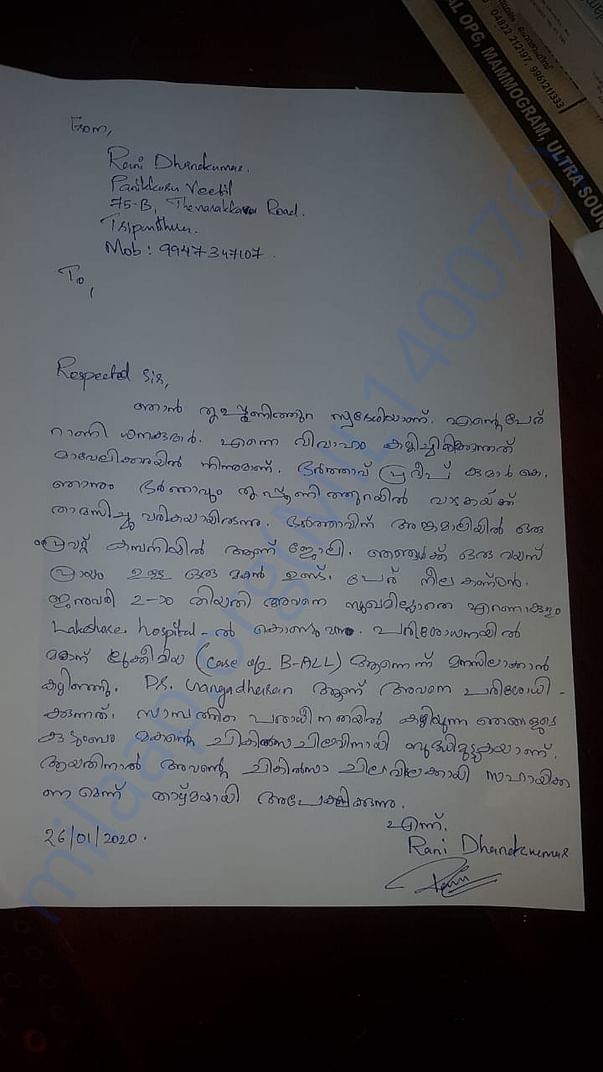 AL OPG, MAMMOGRAM, ULTRA SOUN
04822 212197, 9961211333
From,
Rani Dhanakumar.
Panikkaru Veetil
75-B, Thevarakkavu Road.
Tripunithura.
Mob: 9947347107.
To,
Respected Sir,
ഞാൻ തൃപ്പൂണിത്തുറ സ്വദേശിയാണ്. എന്റെ പേര്
റാണി ധനകുമാർ. എന്നെ വിവാഹം കഴിച്ചിരിക്കുന്നത്
മാവേലിക്കരയിൽ നിന്നുമാണ്. ഭർത്താവ് പ്രദീപ് കുമാർ കെ.
ഞാനും ഭർത്താവും തൃപ്പൂണിത്തുറയിൽ വാടകയ്ക്ക്
താമസിച്ചു വരികയായിരുന്നു. ഭർത്താവിന് അങ്കമാലിയിൽ ഒരു
പ്രൈവറ്റ് കമ്പനിയിൽ ആണ് ജോലി. ഞങ്ങൾക്ക് ഒരു വയസ്
പ്രായം ഉള്ള ഒരു മകൻ ഉണ്ട്. പേര് നീലകണ്ഠൻ.
ജനുവരി 2-ാം തിയതി അവനെ സുഖമില്ലാതെ എറണാകുളം
Lakeshore hospital-ൽ കൊണ്ടുവന്നു. പരിശോധനയിൽ
മകന് ലുക്കീമിയ (case of B-ALL) ആണെന്ന് മനസിലാക്കാൻ
കഴിഞ്ഞു. Dr. Gangadharan ആണ് അവനെ പരിശോധി-
ക്കുന്നത്. സാമ്പത്തിക പരാധീനതയിൽ കഴിയുന്ന ഞങ്ങളുടെ
കുടുംബം മകന്റെ ചികിത്സ ചിലവിനായി ബുദ്ധിമുട്ടുകയാണ്.
ആയതിനാൽ അവന്റെ ചികിത്സാ ചിലവിലേക്കായി സഹായിക്ക
ണമെന്ന് താഴ്മയായി അപേക്ഷിക്കുന്നു.
എന്ന്.
26/01/2020.
Rani Dhanakumar
milaap.org/MIL/140076